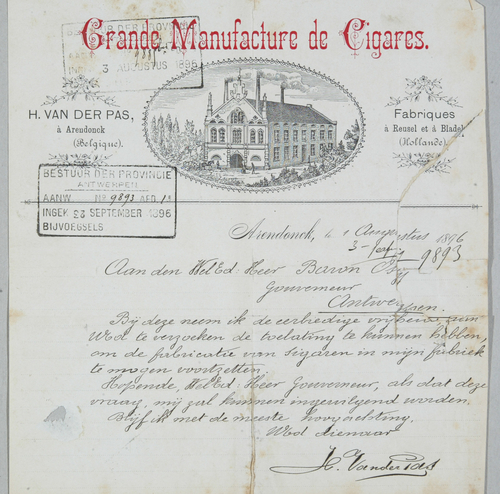 Grande Manufacture de Cigares.
BESTUUR DER PROVINCIE
3 AUGUSTUS 1896
H. VAN DER PAS,
à Arendonck
(Belgique).
Fabriques
à Reusel et à Bladel
(Hollande).
BESTUUR DER PROVINCIE
ANTWERPEN
AANW. Nr. 9893 AFD. 1a
INGEK 23 SEPTEMBER 1896
BIJVOEGSELS
Arendonck, le 1 Augustus 1896
9893
Aan den WelEd. Heer Baron
Gouverneur
Antwerpen.
Bij deze neem ik de eerbiedige
UEd te verzoeken de toelating te kunnen hebben,
om de fabricatie van sigaren in mijn fabriek
te mogen voortzetten.
Hopende, WelEd. Heer Gouverneur, als dat deze
vraag, mij zal kunnen ingewilgend worden.
Blijf ik met de meeste hoogachting.
UEd dienaar
H. VanderPas